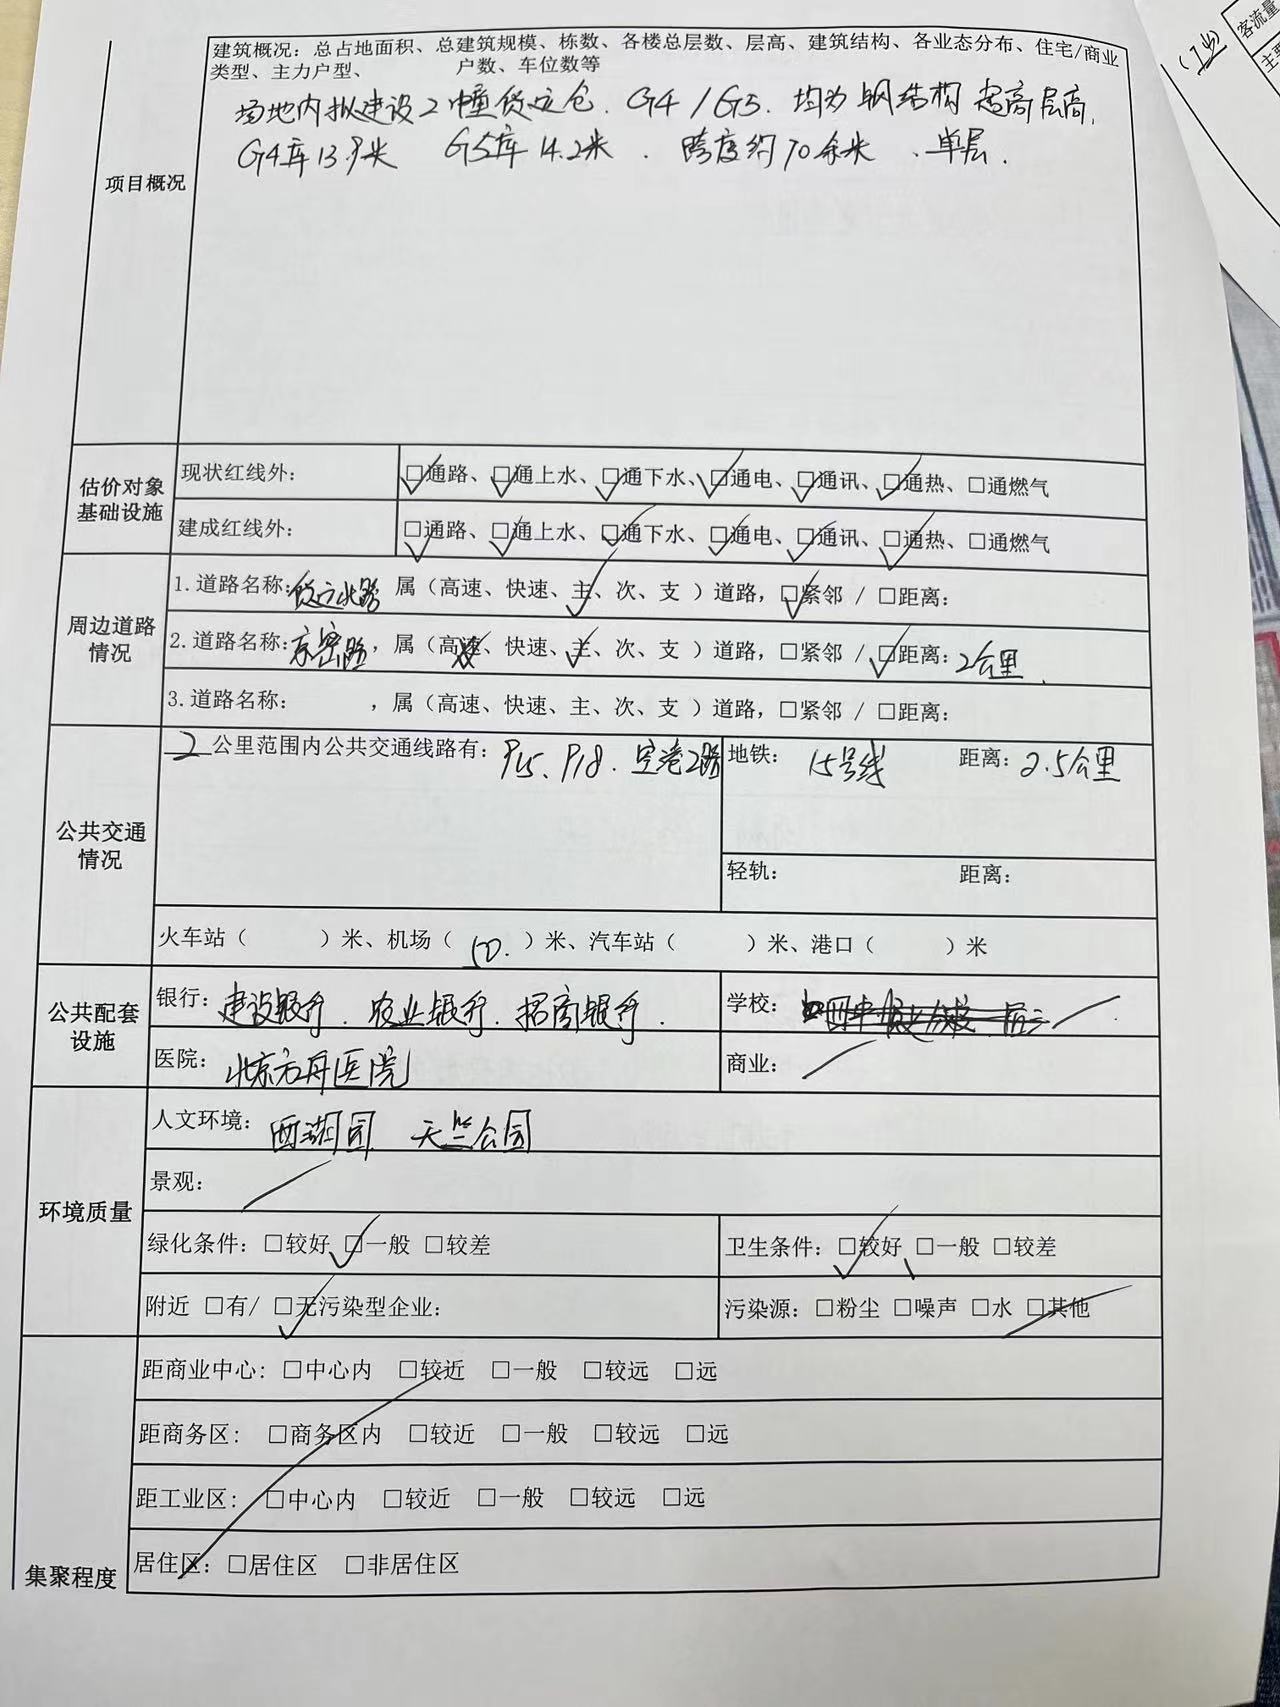 建筑概况：总占地面积、总建筑规模、栋数、各楼总层数、层高、建筑结构、各业态分布、住宅/商业
类型、主力户型、 户数、车位数等
场地内拟建设2幢货运仓、G4/G5、均为钢结构超高层高，
G4库13.9米 G5库14.2米、跨度约70余米、单层.
项目概况
估价对象
基础设施
现状红线外： ☑通路、☑通上水、☑通下水、☑通电、☑通讯、☑通热、□通燃气
建成红线外： ☑通路、☑通上水、☑通下水、☑通电、☑通讯、☑通热、□通燃气
周边道路
情况
1.道路名称：货运北路 属（高速、快速、主✓、次、支 ）道路，☑紧邻 / □距离：
2.道路名称：京密路，属（高速、快速、主✓、次、支 ）道路，□紧邻 / ☑距离：2公里.
3.道路名称： ，属（高速、快速、主、次、支 ）道路，□紧邻 / □距离：
公共交通
情况
2公里范围内公共交通线路有： 空港2路
地铁： 15号线 距离：2.5公里
轻轨： 距离：
火车站（ ）米、机场（ 50. ）米、汽车站（ ）米、港口（ ）米
公共配套
设施
银行：建设银行、农业银行、招商银行.
学校：
医院：北京方舟医院
商业：
环境质量
人文环境：西湖园 天竺公园
景观：
绿化条件：□较好 ☑一般 □较差
卫生条件：☑较好 □一般 □较差
附近 □有/ ☑无污染型企业：
污染源：□粉尘 □噪声 □水 □其他
集聚程度
距商业中心：□中心内 □较近 □一般 □较远 □远
距商务区： □商务区内 □较近 □一般 □较远 □远
距工业区： □中心内 □较近 □一般 □较远 □远
居住区：□居住区 □非居住区
客流量
主要
（工业）